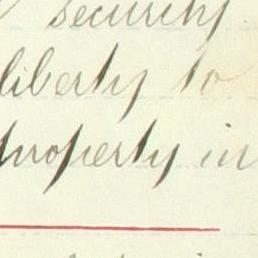 security
liberty to
property in